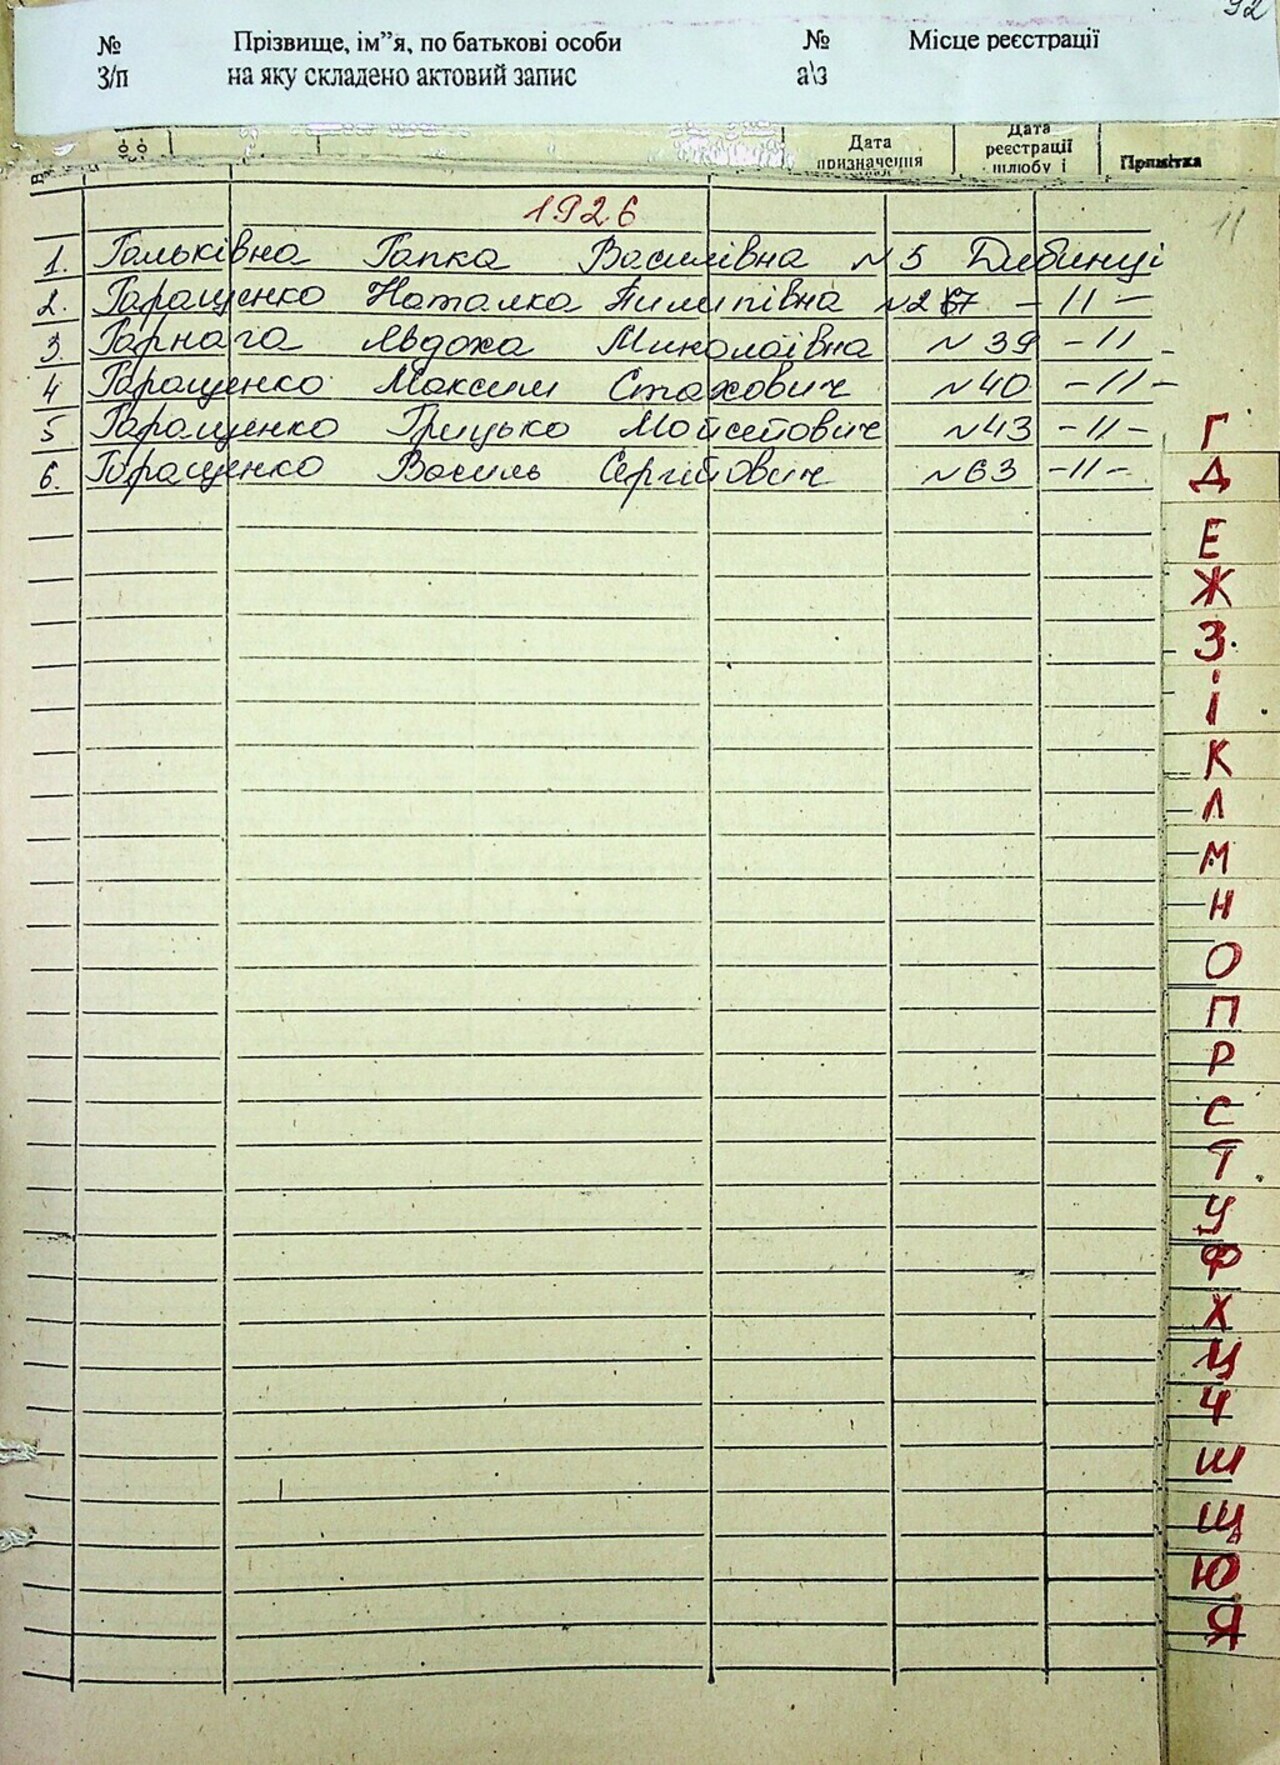 92
№ Прізвище, ім”я, по батькові особи № Місце реєстрації
З/п на яку складено актовий запис а\з
Дата призначення
Дата реєстрації шлюбу і
Примітка
1926
11
1. Гальківна Гапка Василівна №5 Дибинці
2. Гаращенко Наталка Пилипівна №267 -11-
3. Гарнага Явдоха Миколаївна №39 -11-
4 Гаращенко Максим Стахович №40 -11-
5 Гаращенко Грицько Мойсейович №43 -11-
6. Гаращенко Василь Сергійович №63 -11-
Г
Д
Е
Ж
З.
І
К
Л
М
Н
О
П
Р
С
Т
У
Ф
Х
Ц
Ч
Ш
Щ
Ю
Я